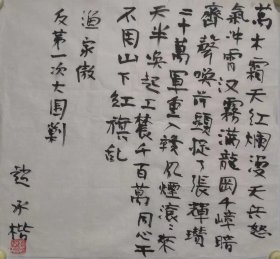 萬木霜天紅爛漫天兵怒
氣沖霄汉霧滿龍岡千嶂暗
齊聲喚前頭捉了張輝瓚
二十萬軍重入贛风煙滚滚來
天半喚起工農千百萬同心干
不周山下紅旗乱
漁家傲
反第一次大围剿
趙承楷